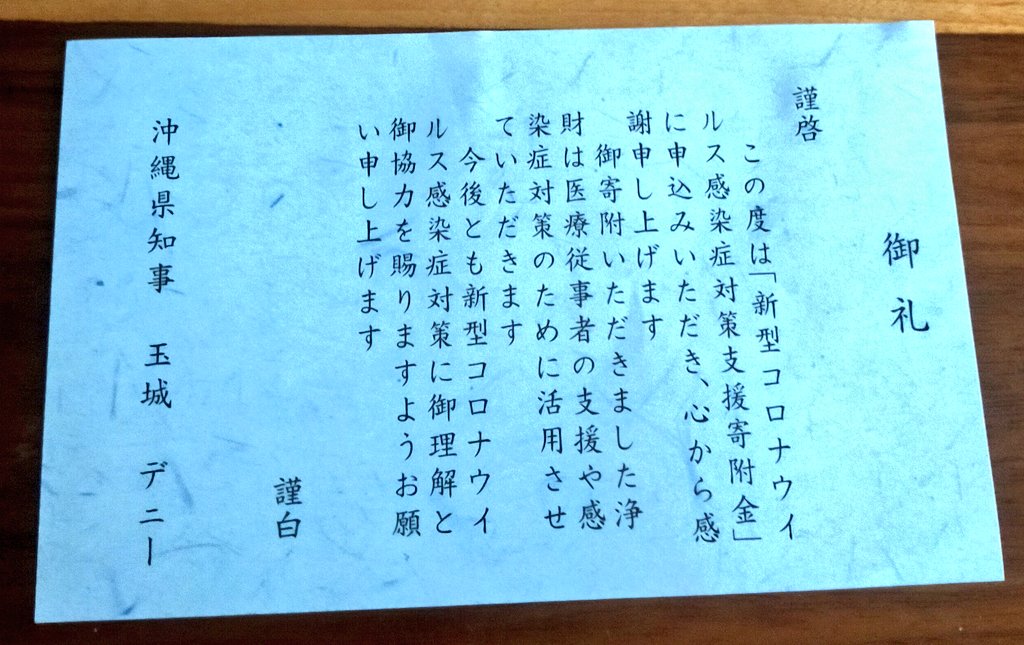 御礼
謹啓
この度は「新型コロナウイ
ルス感染症対策支援寄附金」
に申込みいただき、心から感
謝申し上げます
御寄附いただきました浄
財は医療従事者の支援や感
染症対策のために活用させ
ていただきます
今後とも新型コロナウイ
ルス感染症対策に御理解と
御協力を賜りますようお願
い申し上げます
謹白
沖縄県知事 玉城 デニー